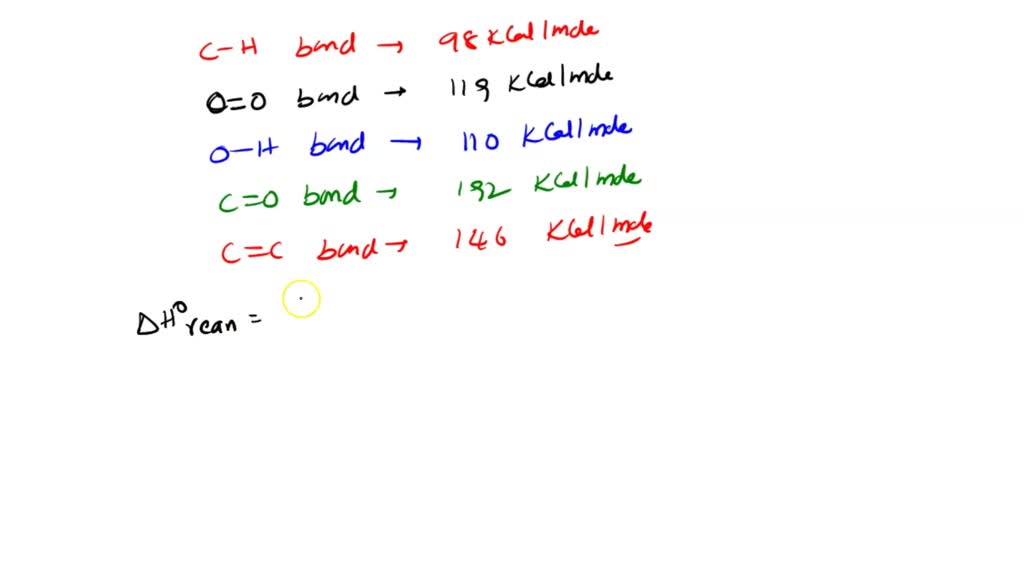 C-H bond → 98 KCal/mole
O=O bond → 119 KCal/mole
O-H bond → 110 KCal/mole
C=O bond → 192 KCal/mole
C=C bond → 146 KCal/mole
ΔH°rean =